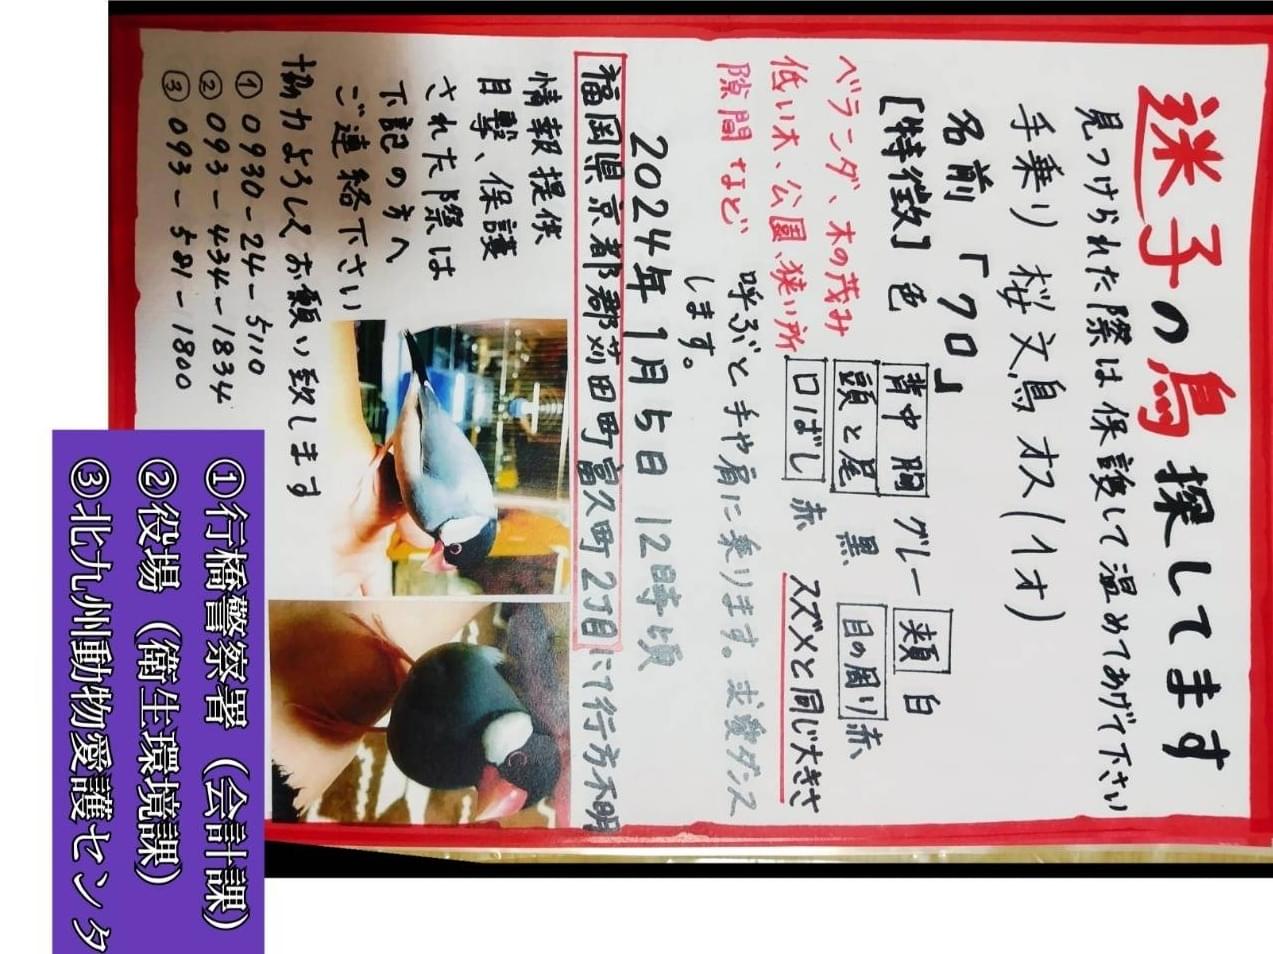 迷子の鳥 探してます
見つけられた際は保護して温めてあげて下さい
手乗り 桜文鳥 オス(1才)
名前 「クロ」
[特徴] 色 背中 胸 グレー 頬 白
頭と尾 黒 目の周り 赤
口ばし 赤 スズメと同じ大きさ
ベランダ、木の茂み
低い木、公園、狭い所
隙間 など
呼ぶと手や肩に乗ります。求愛ダンス
します。
2024年1月5日 12時頃
福岡県京都郡苅田町富久町2丁目にて行方不明
情報提供
目撃、保護
された際は
下記の方へ
ご連絡下さい
協力よろしくお願い致します
① 0930-24-5110
② 093-434-1834
③ 093-581-1800
①行橋警察署（会計課）
②役場（衛生環境課）
③北九州動物愛護センタ